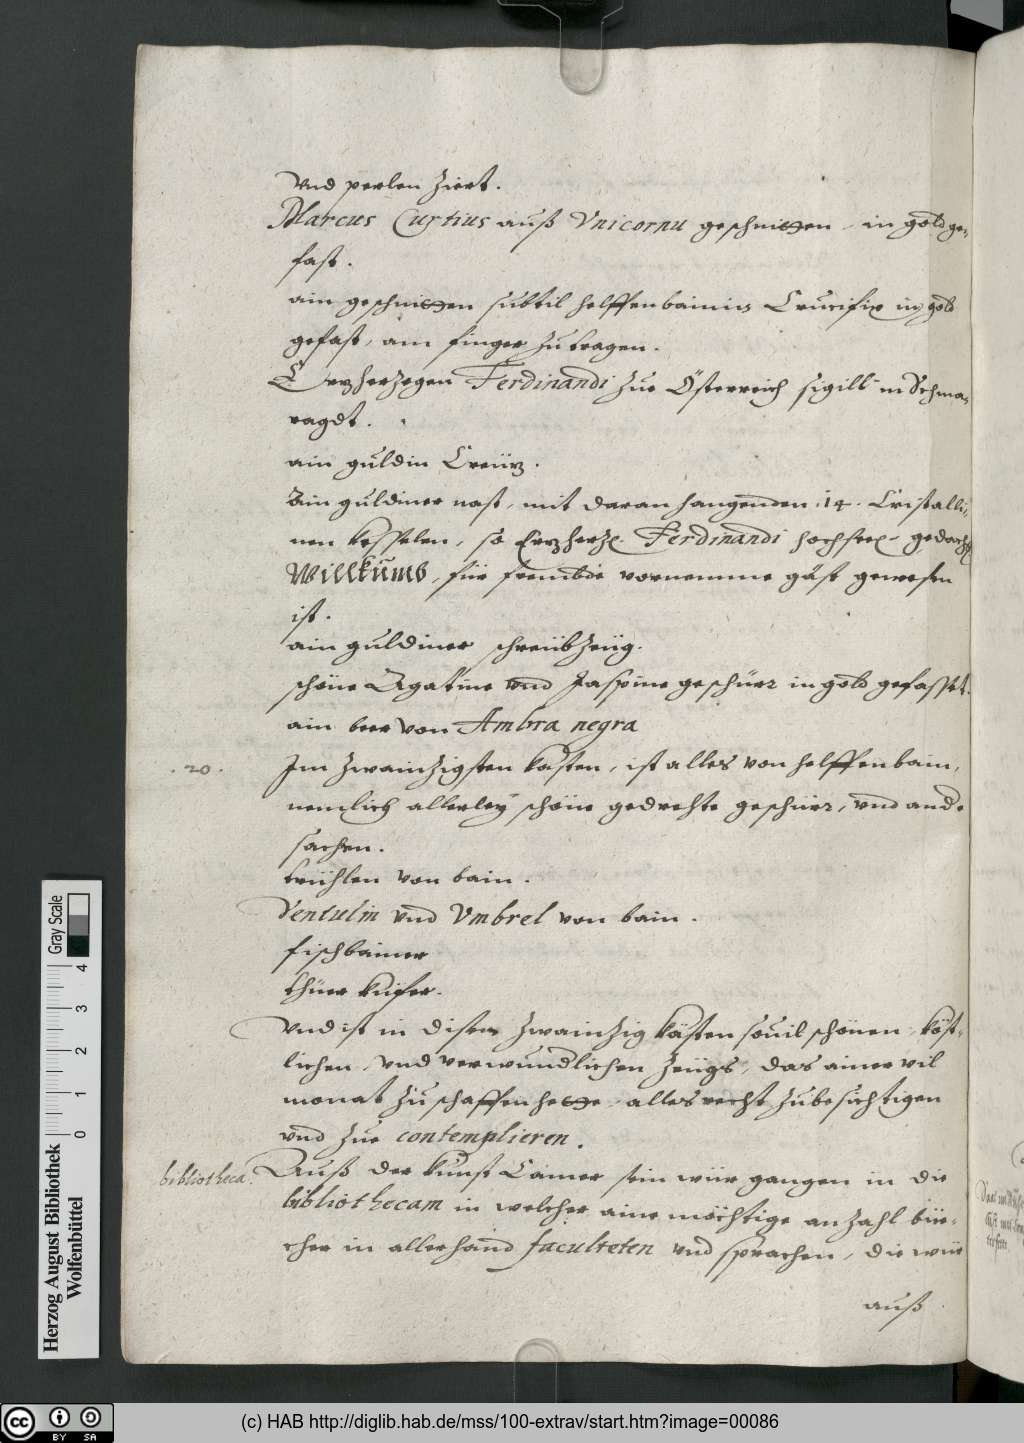 vnd perlen ziert.
Marcus Curtius auß Vnicornu geschnitten, in gold ge-
fast.
ain geschnitten subtil helffenbainin Crucifix in gold
gefast, am finger zu tragen.
Erzherzogen Ferdinandi zue Österreich sigill in Schma-
ragdt.
ain guldin Creüz.
Ain guldiner nast, mit daran hangenden 14. Cristalli-
nen kesselen, so Erzherz. Ferdinandi hochsee. gedacht
Willkumb, für frembde vornemme gäst gewesen
ist.
ain guldiner schreibzeüg.
schöne Agatine vnd Jaspine geschürz in gold gefasset.
ain beer von Ambra negra
.20.
Im zwainzigsten kasten, ist alles von helffenbain,
nemlich allerley schöne gedrehte geschürz, vnd and.
sachen.
trühlen von bain.
Ventulin vnd Vmbrel von bain.
fischbainer
thüer kiifer.
Vnd ist in disen zwainzig kästen souil schönen, köst-
lichen, vnd verwundlichen zeügs, das ainer vil
monat zu schaffen hette, alles recht zubesichtigen
vnd zue contemplieren.
bibliotheca.
Auß der kunst Camer sein wiir gangen in die
bibliothecam in welcher aine mächtige anzahl büe-
cher in allerhand faculteten vnd sprachen, die wür
auß
Herzog August Bibliothek
Wolfenbüttel
Gray Scale
0 1 2 3 4
cc BY SA
(c) HAB http://diglib.hab.de/mss/100-extrav/start.htm?image=00086